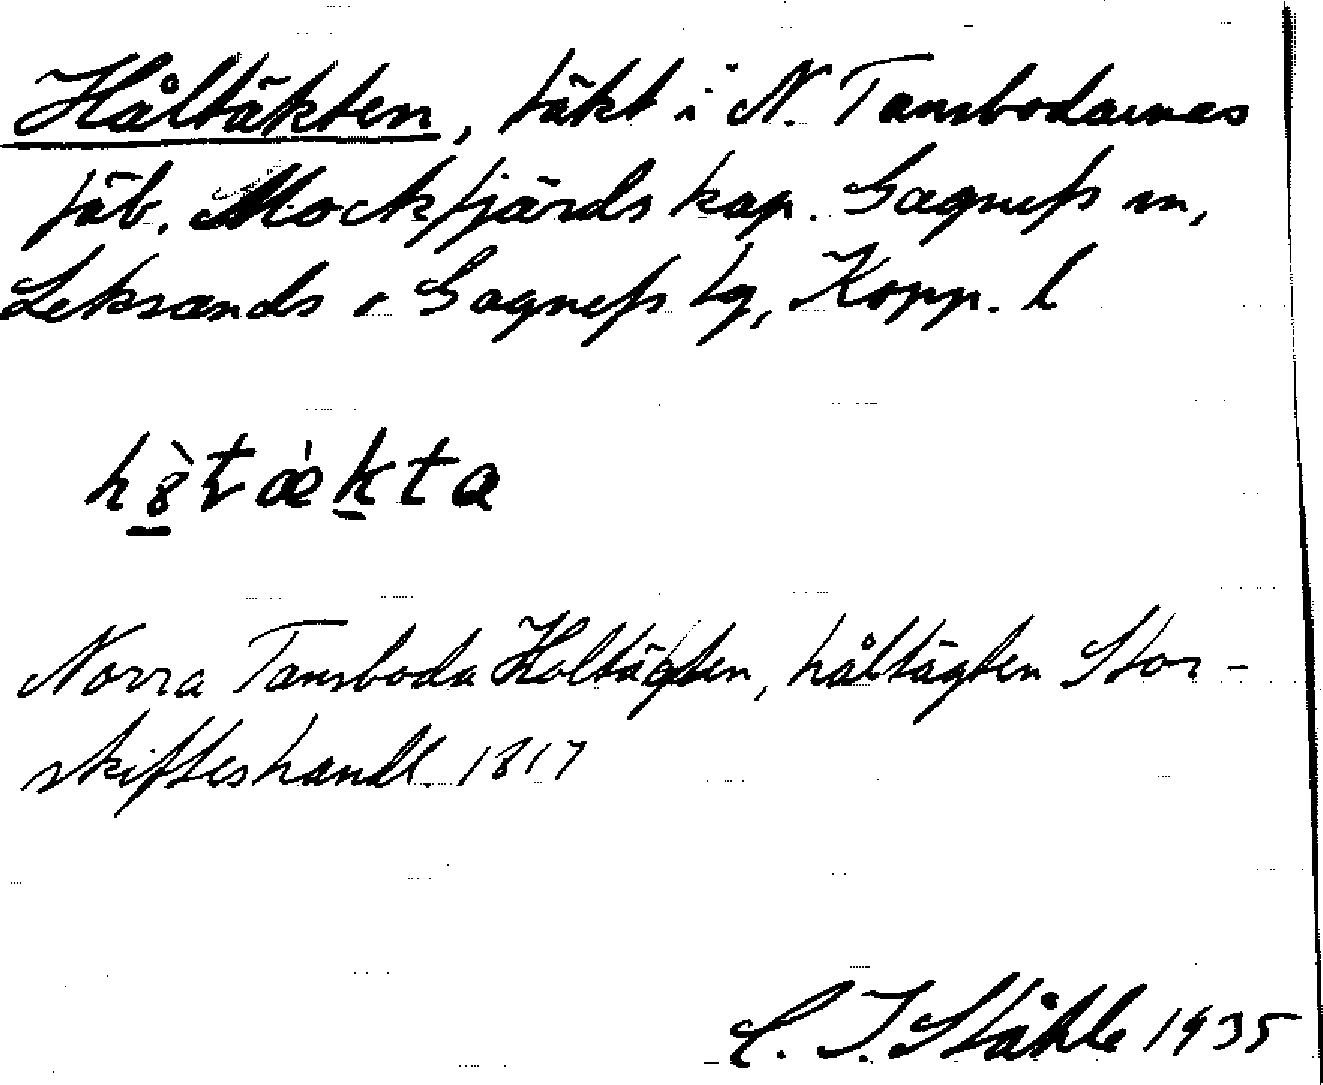 Håltäkten, täkt i N. Tansbodarnas
fäb. Mockfjärds kap. Gagnefs sn,
Leksands o Gagnefs tg, Kopp. l
Norra Tansboda Holtägten, håltägten Stor-
skifteshandl. 1817
C. I. Ståhle 1935